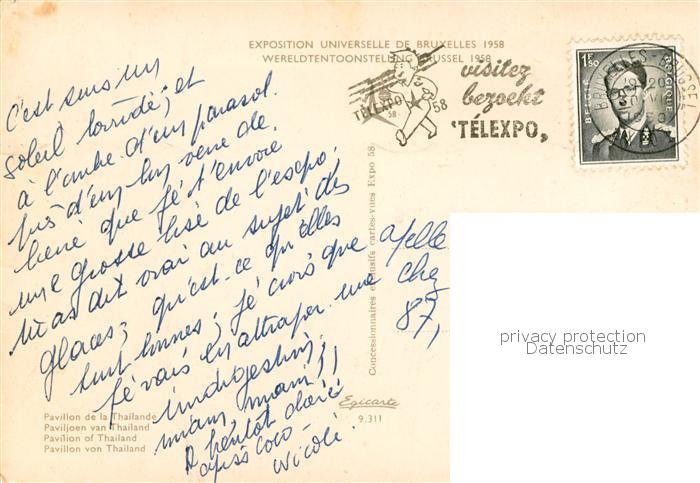 EXPOSITION UNIVERSELLE DE BRUXELLES 1958
WERELDTENTOONSTELLING BRUSSEL 1958
TÉLEXPO
58
58
visitez
bezoekt
'TÉLEXPO,
1F50
BELGIE
BELGIQUE
C'est sous un
soleil torride; et
à l'ombre d'un parasol.
près d'un bon verre de
bière que jé t'envoie
une grosse bisé de l'espo,
tu as dit vrai au sujet des
glaces, qu'est-ce qu'elles
sont bonnes; jé crois que
jé vais en attraper une
indigestion,
miam, miam!!
A bientôt
Coco -
Nicole.
apelle
chez
87,
Concessionnaires exclusifs cartes-vues Expo 58
Pavillon de la Thaïlande
Paviljoen van Thailand
Pavilion of Thailand
Pavillon von Thailand
Egicarte
9.311
privacy protection
Datenschutz